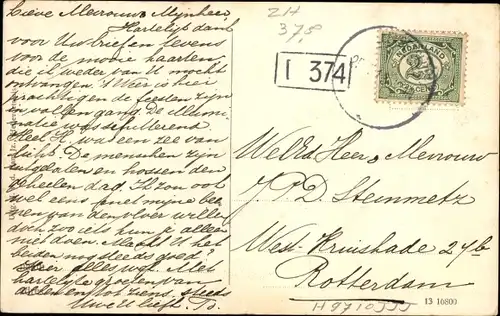 Lieve Mevrouw & Mijnheer
Hartelijk dank
voor Uw brief en tevens
voor de mooie kaarten
die ik weder van U mocht
ontvangen. 't Weer is hier
prachtig en de feesten zijn
in vollen gang. De illumi-
natie was schitterend
Heel R. was een zee van
licht. De menschen zijn
uitgelaten en hossen den
geheelen dag. Ik zou ook
wel eens met mijne
van den vloer willen
doch zoo iets kun je alleen
niet doen. Maakt U het
beiden nog steeds goed?
Hier alles wel. Met
hartelijke groeten van
allen en tot ziens, steeds
Uw liefh.
2H
37,5
I 374
NEDERLAND
2½
CENT
WelEd Heer & Mevrouw
J. P. D. Steinmetz
West-Kruiskade 27b
Rotterdam
H9710JJJ
13 10800